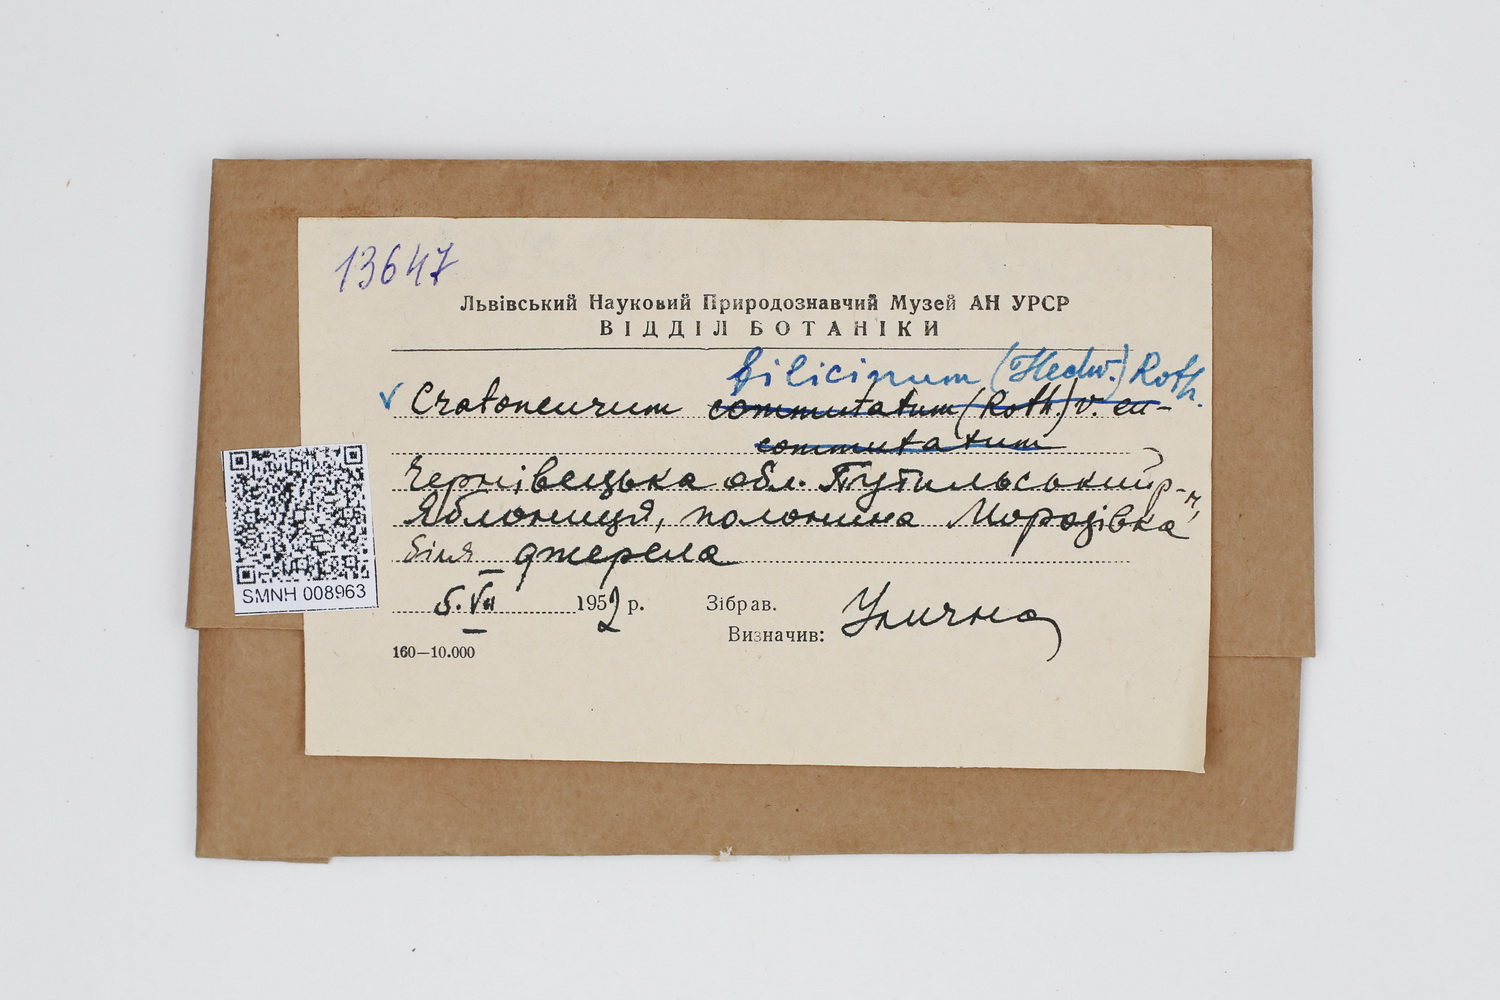 13647
Львівський Науковий Природознавчий Музей АН УРСР
ВІДДІЛ БОТАНІКИ
filicinum (Hedw.) Roth.
✓ Cratoneurum commutatum (Roth.) v. eu-
commutatum
Чернівецька обл. Путильський р-н,
Яблониця, полонина Мородівка
біля джерела
SMNH 008963
5.VII 1952 р. Зібрав.
Визначив: Улична
160—10.000